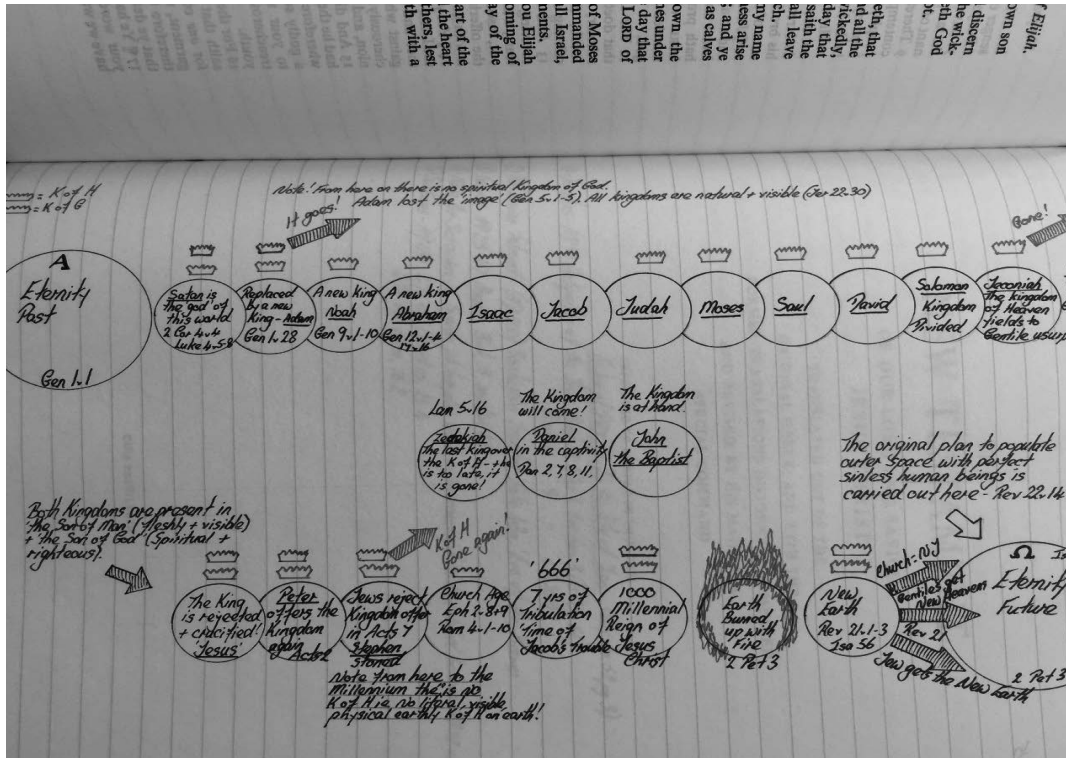 of Elijah.
own son
discern
he wick-
eth God
ot.
eth, that
d all the
ickedly,
day that
saith the
all leave
ch.
ny name
ess arise
; and ye
as calves
own the
nes under
day that
Lord of
of Moses
mmanded
ll Israel,
nents.
ou Elijah
oming of
ay of the
art of the
the heart
thers, lest
th with a
= K of H
= K of G
Note! From here on there is no spiritual Kingdom of God.
Adam lost the 'image' (Gen 5v1-5). All kingdoms are natural + visible (Jer 22.30)
It goes!
Gone!
A
Eternity
Past
Gen 1v1
Satan is
the 'god' of
this world
2 Cor 4v4
Luke 4v5-8
Replaced
by a new
King - Adam
Gen 1v28
A new King
Noah
Gen 9v1-10
A new King
Abraham
Gen 12v1-4
17v16
Isaac
Jacob
Judah
Moses
Saul
David
Solomon
Kingdom
Divided
Jeconiah
The kingdom
of Heaven
yields to
Gentile usurp
Lam 5v16
Zedekiah
The last king over
the K of H - +he
is too late, it
is gone!
The Kingdom
will come!
Daniel
in the captivity
Dan 2, 7, 8, 11,
The Kingdom
is at hand.
John
the Baptist
The original plan to populate
outer space with perfect
sinless human beings is
carried out here - Rev 22v14
Both Kingdoms are present in
'the Son of Man' (fleshly + visible)
+ 'the Son of God' (Spiritual +
righteous).
The King
is rejected
+ crucified!
'Jesus'
Peter
offers the
Kingdom
again
Acts 2
Jews reject
Kingdom offer
in Acts 7
Stephen
stoned
K of H
Gone again!
Note from here to the
Millennium the" is no
K of H ie no literal, visible,
physical earthly K of H on earth!
Church Age
Eph 2v8+9
Rom 4v1-10
'666'
7 yrs of
Tribulation
'Time of
Jacob's Trouble
1000
Millennial
Reign of
Jesus
Christ
Earth
Burned
up with
Fire
2 Pet 3
New
Earth
Rev 21v1-3
Isa 56
Church: NJ
Gentiles get
New Heavens
Rev 21
Jew gets the New Earth
Ω
Eternity
Future
2 Pet 3